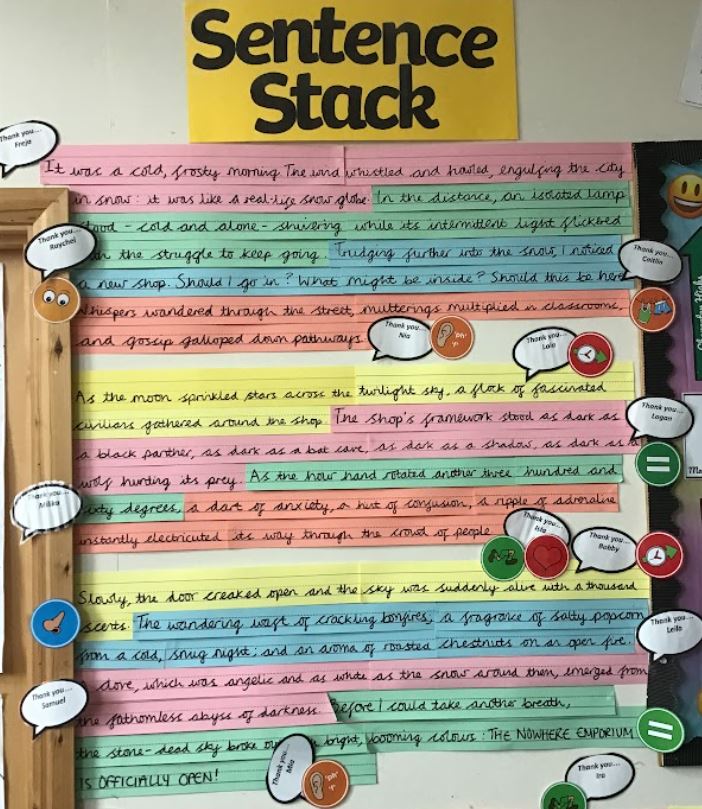 Sentence
Stack
Thank you...
Freja
It was a cold, frosty morning. The wind whistled and howled, engulfing the city
in snow: it was like a real-life snow globe. In the distance, an isolated lamp
stood - cold and alone - shivering while its intermittent light flickered
the struggle to keep going. Trudging further into the snow, I noticed
a new shop. Should I go in? What might be inside? Should this be here
Thank you...
Raychel
Thank you...
Caitlin
Whispers wandered through the street, mutterings multiplied in classrooms,
and gossip galloped down pathways.
Thank you...
Nia
Thank you...
Lola
As the moon sprinkled stars across the twilight sky, a flock of fascinated
civilians gathered around the shop. The shop's framework stood as dark as
a black panther, as dark as a bat cave, as dark as a shadow, as dark as a
wolf hunting its prey. As the hour hand rotated another three hundred and
sixty degrees, a dart of anxiety, a hint of confusion, a ripple of adrenaline
instantly electricuted its way through the crowd of people
Thank you...
Logan
Thank you...
Milika
Thank you...
Isla
Thank you...
Bobby
Slowly, the door creaked open and the sky was suddenly alive with a thousand
scents. The wandering waft of crackling bonfires; a fragrance of salty popcorn
from a cold, snug night; and an aroma of roasted chestnuts on an open fire.
dove, which was angelic and as white as the snow around them, emerged from
the fathomless abyss of darkness. Before I could take another breath,
the stone-dead sky broke bright, booming colours: THE NOWHERE EMPORIUM
IS OFFICIALLY OPEN!
Thank you...
Leila
Thank you...
Samuel
Thank you...
Mia
'ph'
Thank you...
Ira